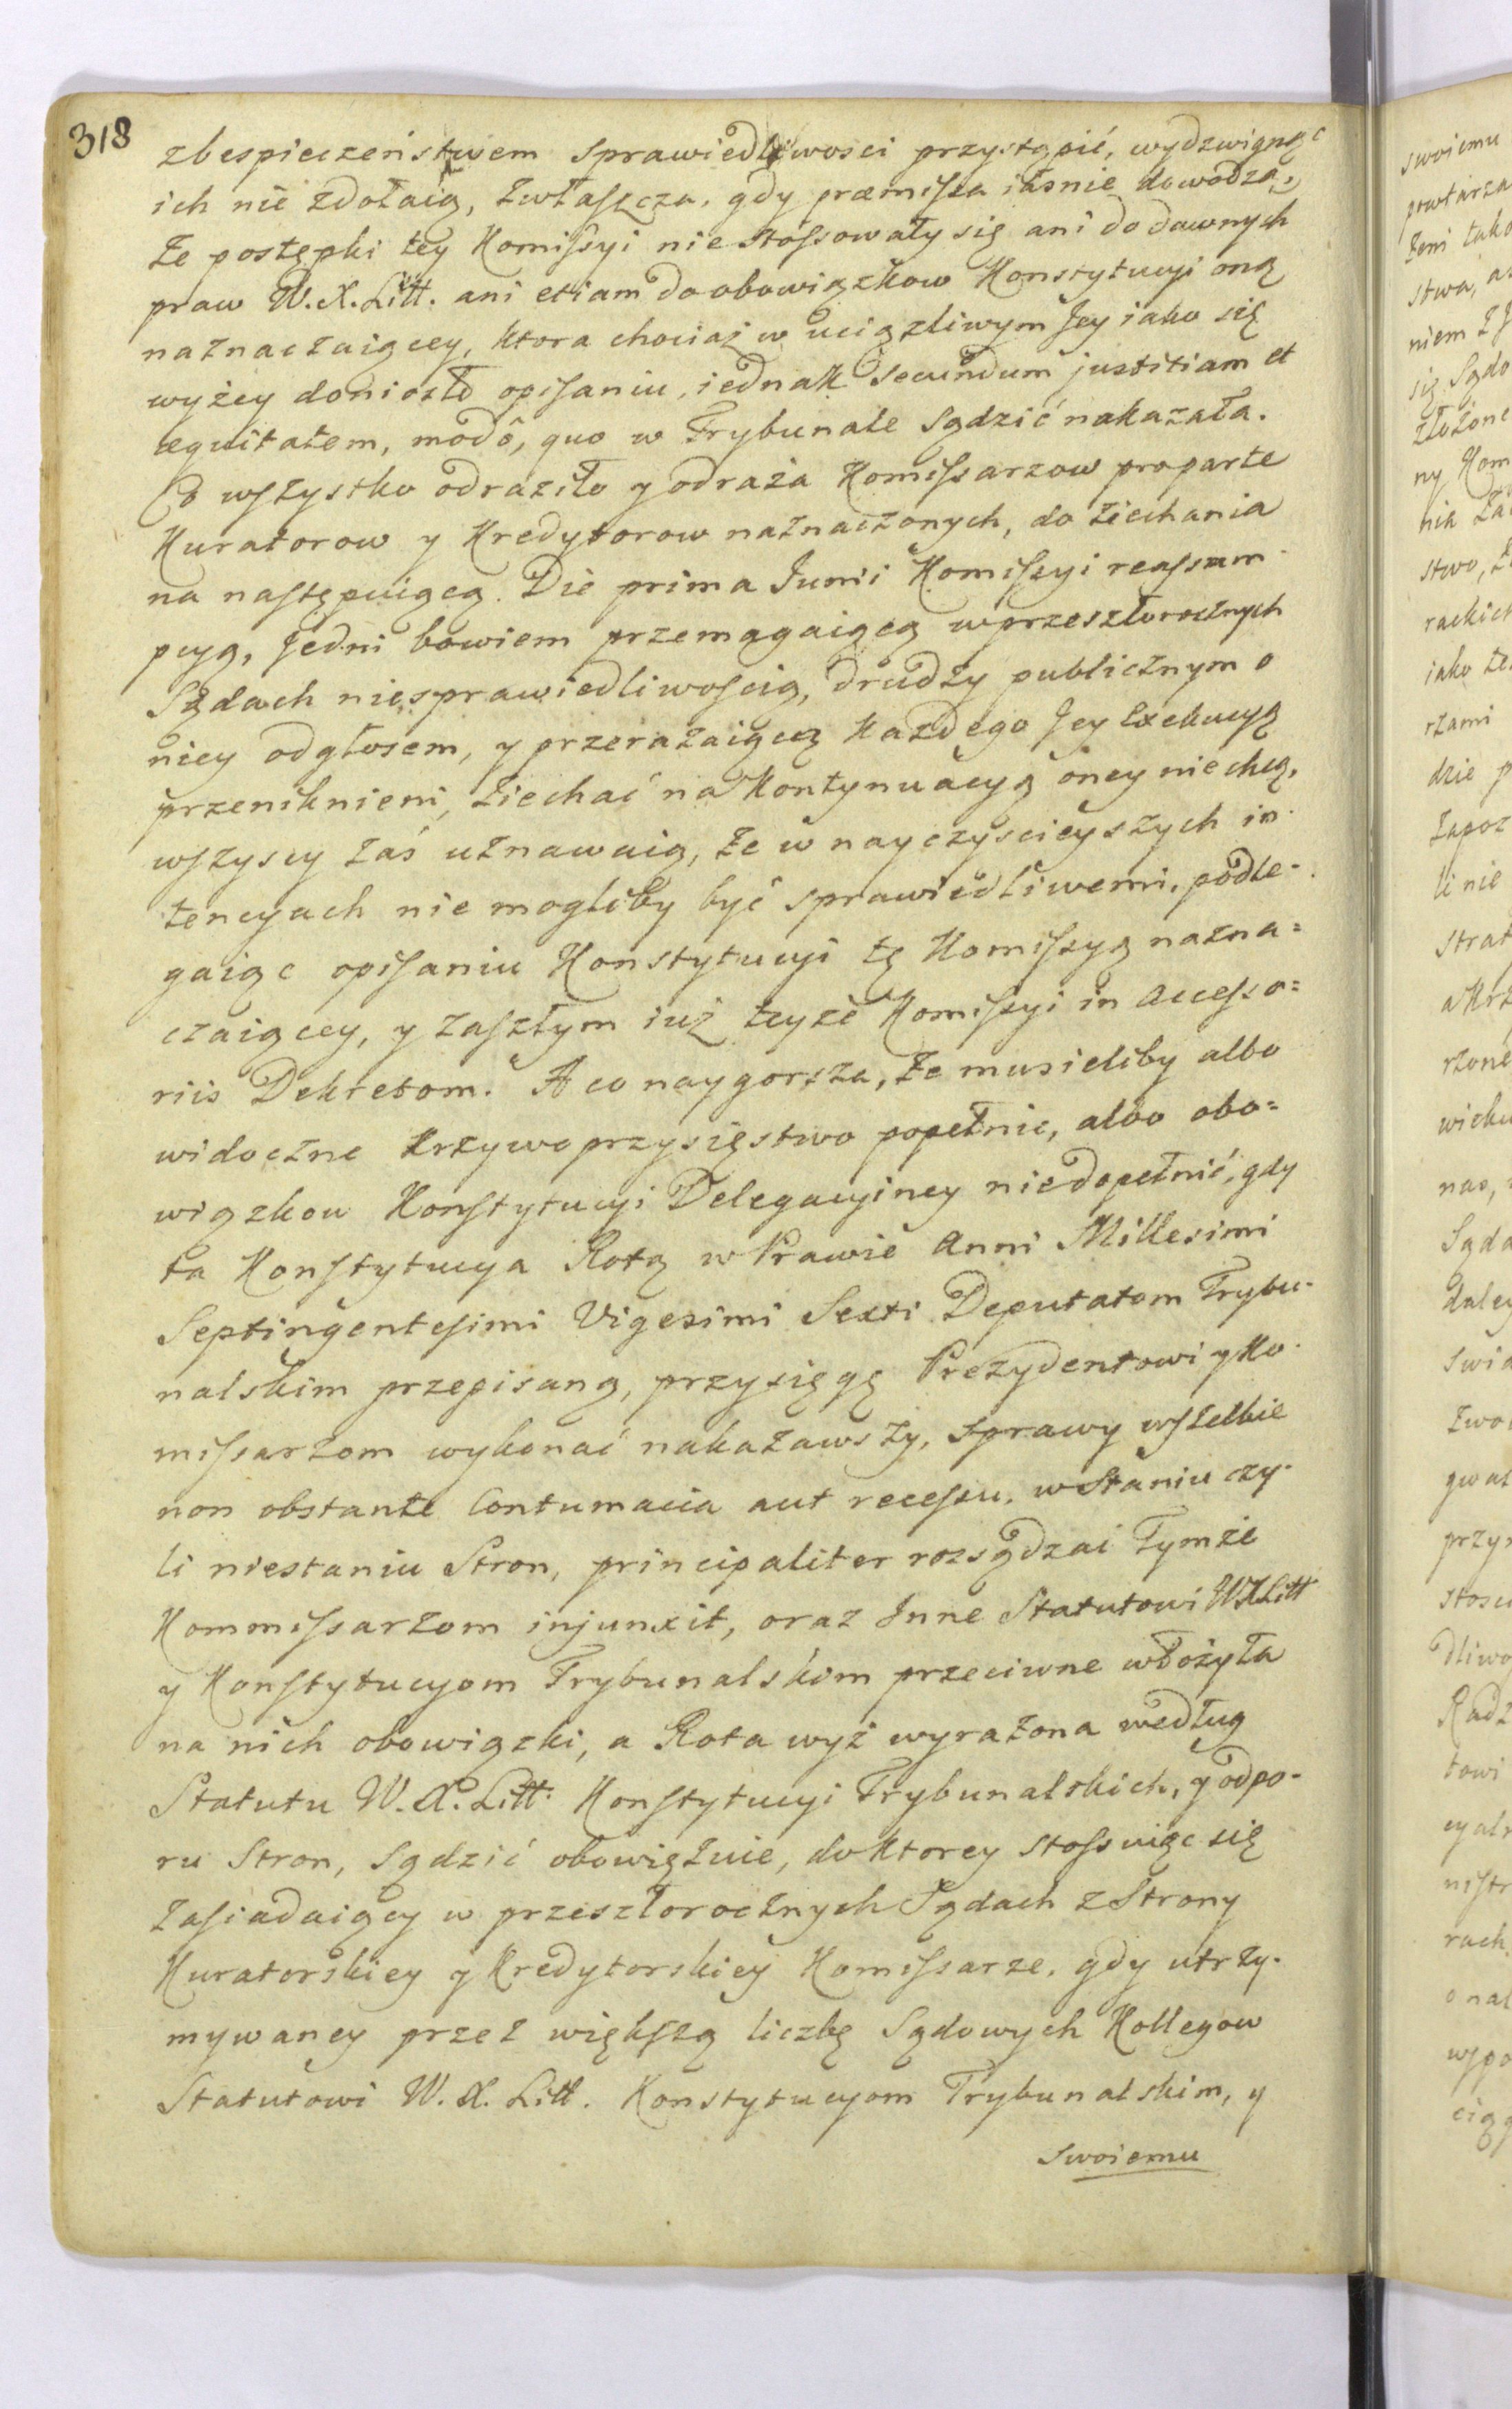 318
zbespieczeństwem sprawiedliwosci przystąpić, wydzwignąć
ich nie zdołaią, Zwłaszcza, gdy præmissa iasnie dowodzą,
Że postępki tey Komissyi nie stossowały się ani do dawnych
praw W. X. Litt. ani etiam do obowiązkow Konstytucyi oną
naznaczaiącey, ktora chociaż w uciązliwym Jey iako się
wyżey doniosło opisaniu, iednak secundum justitiam et
æquitatem, modô, quo w Trybunale Sądzić nakazała.
Co wszystko odraziło y odraża Komissarzow pro parte
Kuratorow y Kredytorow naznaczonych, do ziechania
na następuiącą Die prima Junii Komissyi reassum
pcyą, Jedni bowiem przemagaiącą w przeszłorocznych
Sądach niesprawiedliwością, drudzy publicznym o
niey odgłosem, y przerażaiącą każdego Jey Exekucyą
przeniknieni, ziechać na Kontynuacyą oney nie chcą,
wszyscy zaś uznawaią, że w nayczyscieyszych in
tencyach nie mogliby być sprawiedliwemi, podle-
gaiąc opisaniu Konstytucyi tę Komissyą nazna=
czaiącey, y zaszłym iuż teyże Komissyi in accesso=
riis Dekretom. A co naygorsza, że musieliby albo
widoczne krzywoprzysięstwo popełnic, albo obo=
wiązkow Konstytucyi Delegacyiney niedopełnić, gdy
ta Konstytucya Rotą w Prawie Anni Millesimi
Septingentesimi Vigesimi Sexti Deputatom Trybu-
nalskim przepisaną, przysięgę Prezydentowi y Ko-
missarzom wykonać nakazawszy, sprawy wszelkie
non obstante Contumacia aut recessu, w staniu czy-
li niestaniu Stron, principaliter rozsądzać Tymże
Kommissarzom injunxit, oraz Inne Statutowi WXLitt
y Konstytucyom Trybunalskim przeciwne włożyła
na nich obowiązki, a Rota wyż wyrażona według
Statutu W. X. Litt. Konstytucyi Trybunalskich, y odpo-
ru Stron, Sądzić obowiązuie, do ktorey stossuiąc się
Zasiadaiący w przeszłorocznych Sądach z Strony
Kuratorskiey y Kredytorskiey Komissarze, gdy utrzy-
mywaney przez większą liczbę Sądowych Kollegow
Statutowi W. X. Litt. Konstytucyom Trybunalskim, y
swoiemu